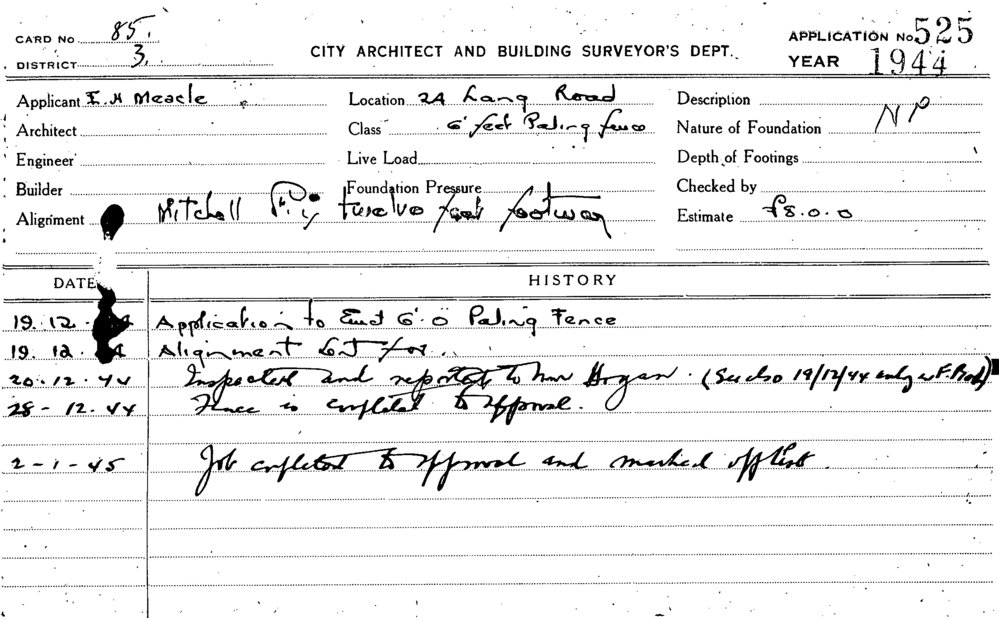 CARD No 85.
DISTRICT 3.
CITY ARCHITECT AND BUILDING SURVEYOR'S DEPT.
APPLICATION No. 525
YEAR 1944
Applicant E. H Meacle
Location 24 Lang Road
Description
Architect
Class 6' feet Paling fence
Nature of Foundation NP
Engineer
Live Load
Depth of Footings
Builder
Foundation Pressure
Checked by
Alignment Mitchell twelve feet footway
Estimate £8.0.0
DATE
HISTORY
19.12. Application to Erect 6'.0 Paling Fence
19.12. Alignment for
20.12.44 Inspected and reported to Mr Hogan. (See also 19/12/44 F.
28-12.44 Fence is completed to approval.
2-1-45 Job completed to approval and marked off list.